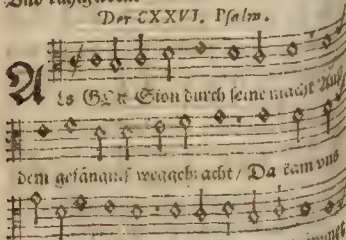 Der CXXVI. Psalm.
Als GOtt Sion durch seine macht Auß
dem gefängnis weggebracht / Da kam vns